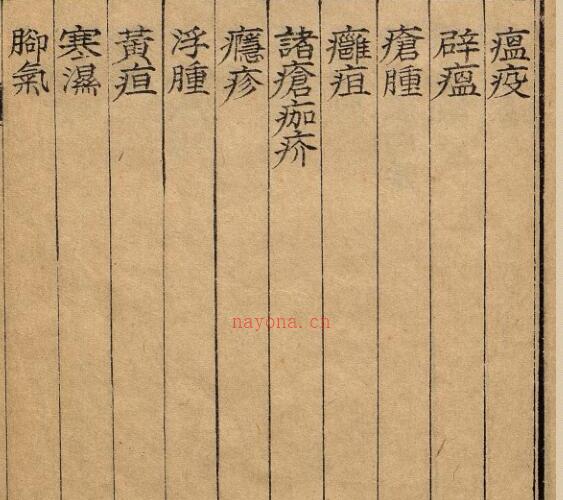 瘟疫
辟瘟
瘡腫
癰疽
諸瘡痂疥
癮疹
浮腫
黃疸
寒濕
腳氣
nayona.cn